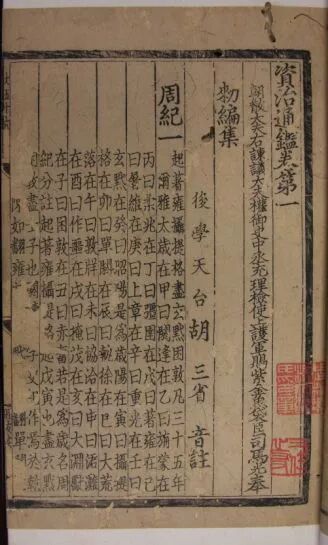 資治通鑑卷第一
朝散大夫右諫議大夫權御史中丞充理檢使上護軍賜紫金魚袋臣司馬光奉
勑編集
後學天台胡三省音註
周紀一
起著雍攝提格盡玄黓困敦凡三十五年
爾雅太歲在甲曰閼逢在乙曰旃蒙在
丙曰柔兆在丁曰彊圉在戊曰著雍在己
曰屠維在庚曰上章在辛曰重光在壬曰
玄黓在癸曰昭陽是爲歲陽在寅曰攝提
格在卯曰單閼在辰曰執徐在巳曰大荒
落在午曰敦牂在未曰協洽在申曰涒灘
在酉曰作噩在戌曰掩茂在亥曰大淵獻
在子曰困敦在丑曰赤奮若是爲歲名周
紀分註起著雍攝提格起戊寅也盡玄黓
困敦盡壬子也